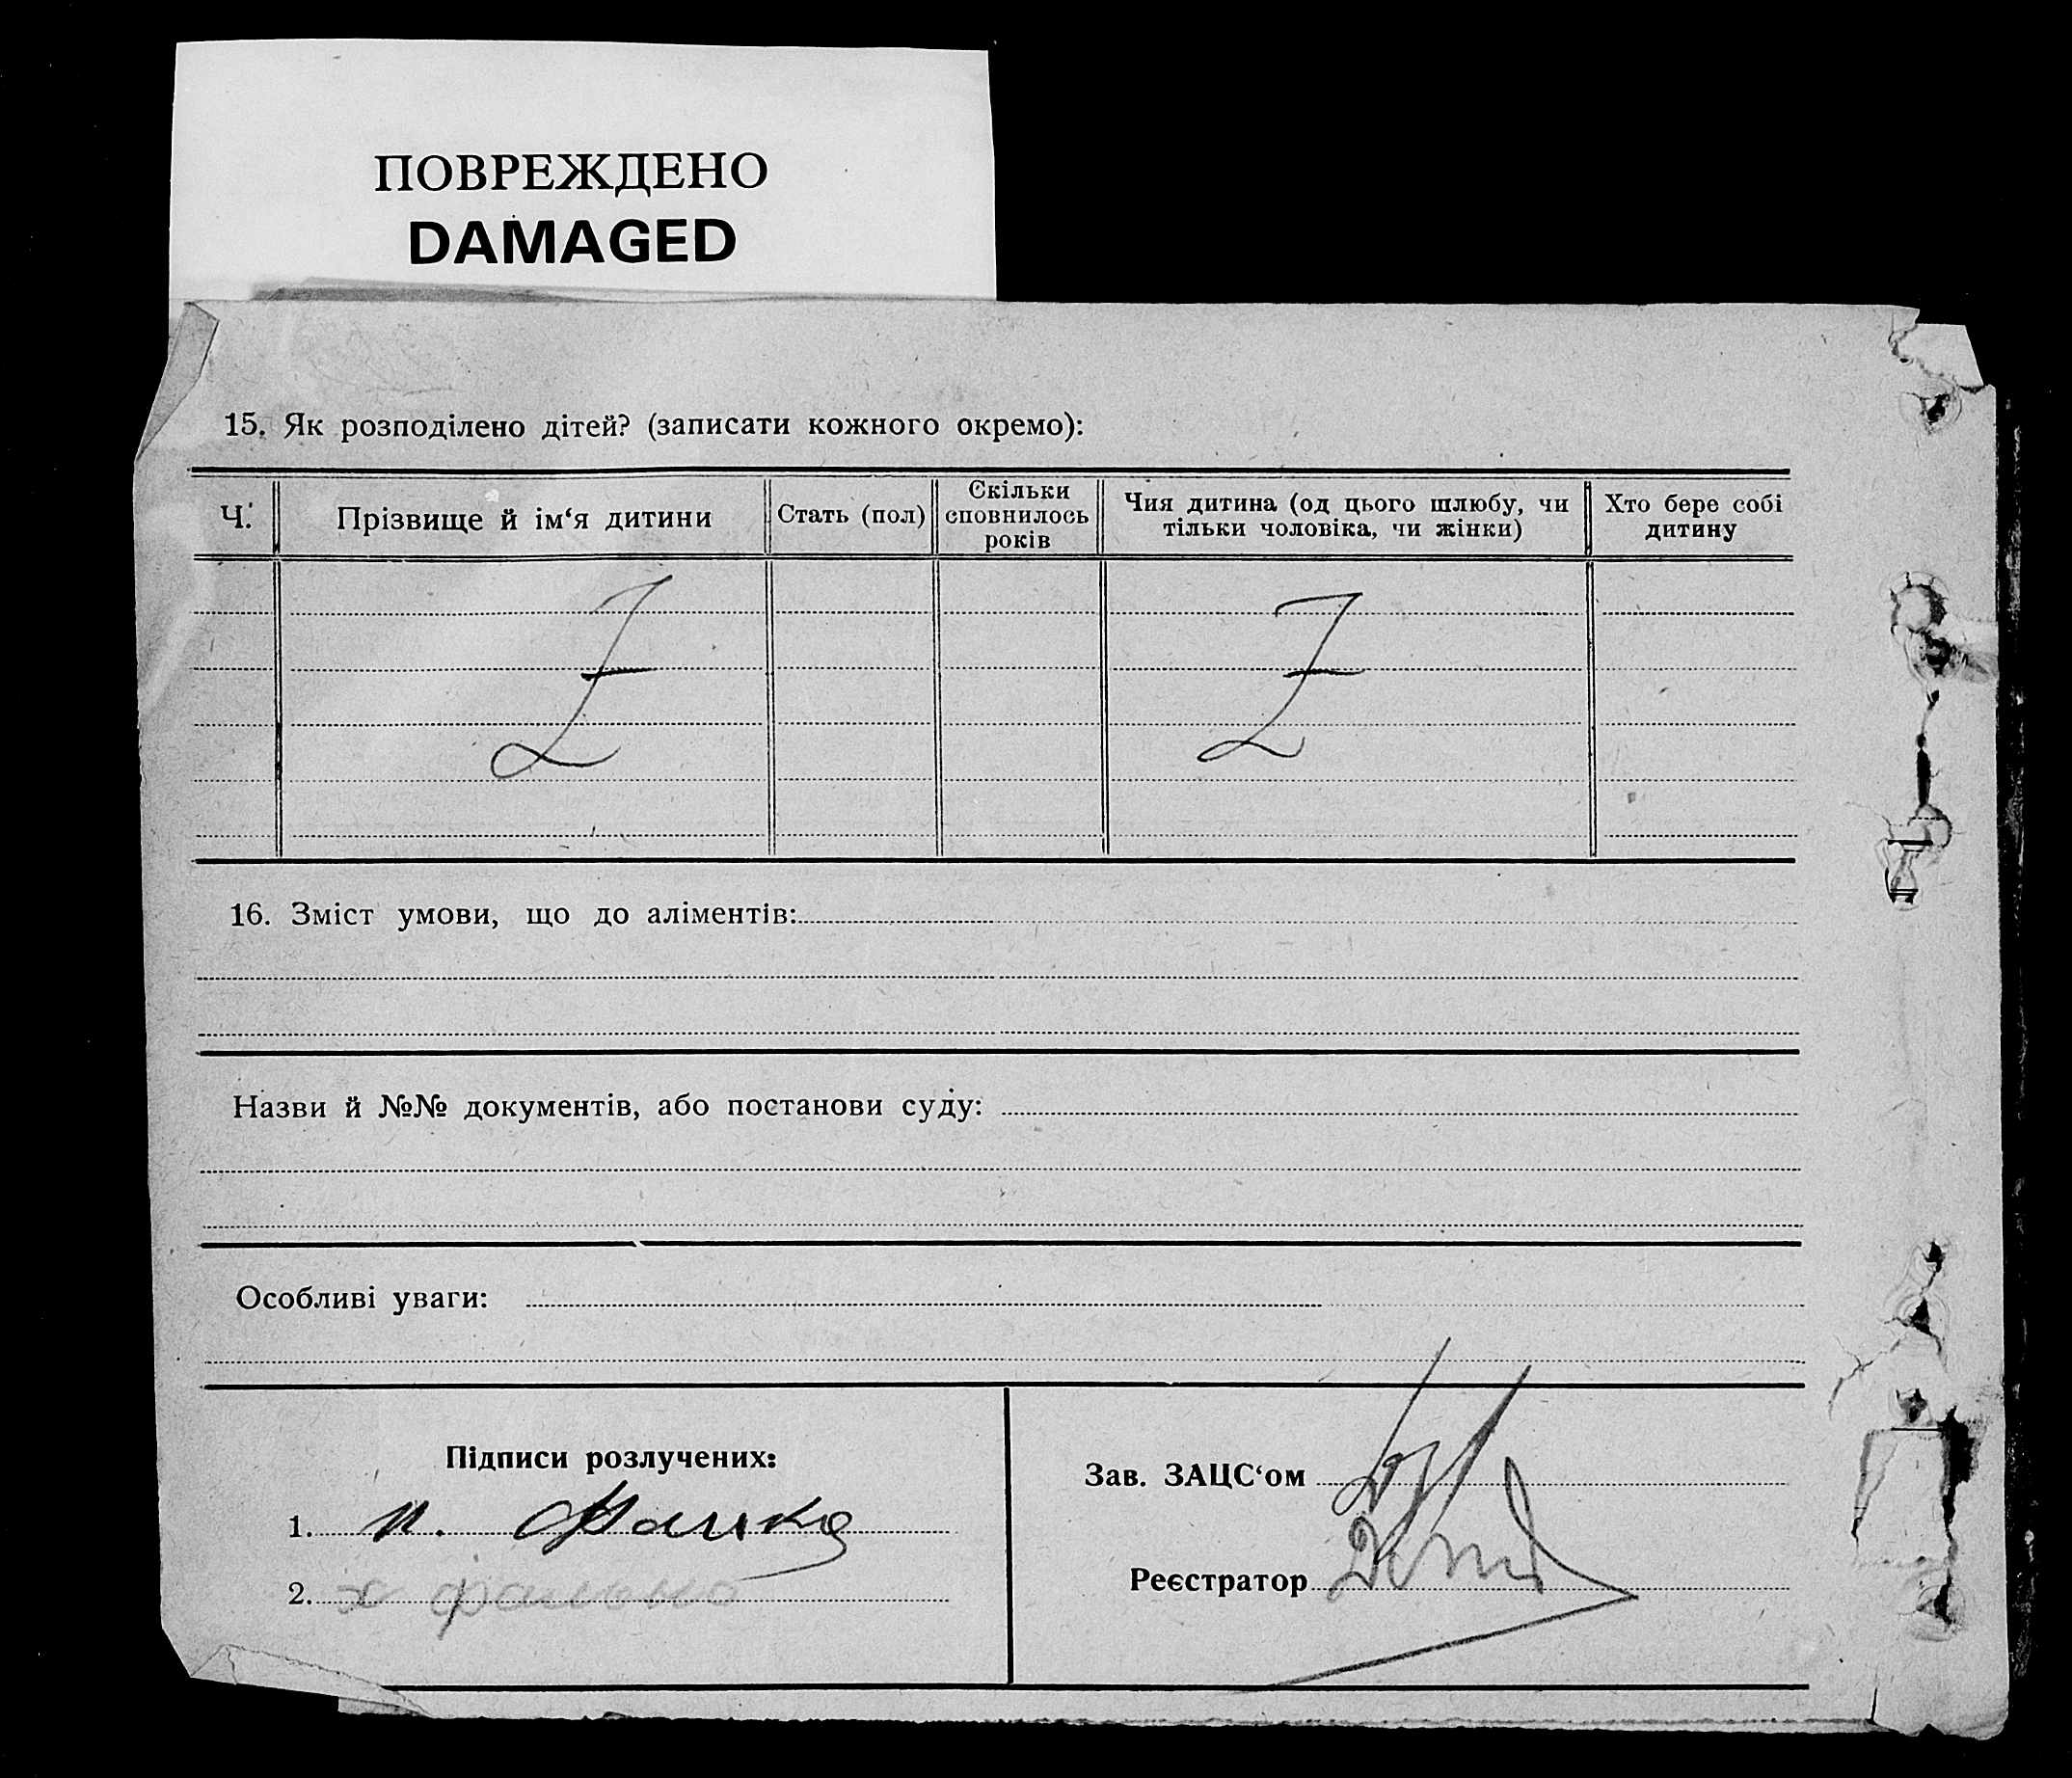 ПОВРЕЖДЕНО
DAMAGED
15. Як розподілено дітей? (записати кожного окремо):
Ч. Прізвище й ім‘я дитини Стать (пол) Скільки сповнилось років Чия дитина (од цього шлюбу, чи тільки чоловіка, чи жінки) Хто бере собі дитину
Z Z
16. Зміст умови, що до аліментів:
Назви й №№ документів, або постанови суду:
Особливі уваги:
Підписи розлучених:
Зав. ЗАЦС‘ом
1.
Реєстратор
2.